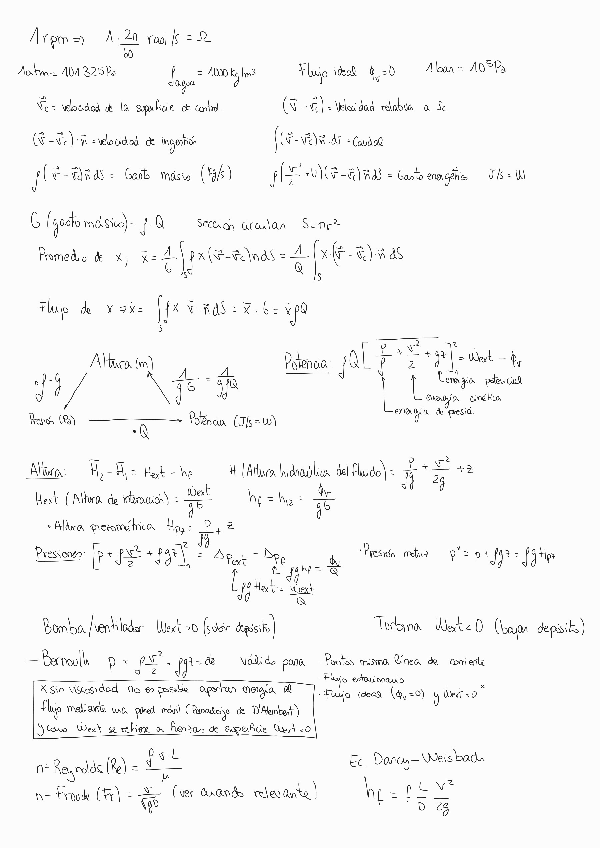 1 rpm ⇒ 1 · 2π/60 rad/s = Ω
1 atm = 101325 Pa ρ agua = 1000 kg/m³ Flujo ideal ϕv = 0 1 bar = 10⁵ Pa
v⃗c = velocidad de la superficie de control (v⃗ - v⃗c) = Velocidad relativa a Sc
(v⃗ - v⃗c) · n⃗ = velocidad de ingestión ∫(v⃗ - v⃗c) n⃗ · dS = Caudal
∫ρ(v⃗ - v⃗c) n⃗ dS = Gasto másico (kg/s) ρ∫(v²/2 + U)(v⃗ - v⃗c) n⃗ dS = Gasto energético J/s = W
G (gasto másico) = ρ Q sección circular S = πr²
Promedio de x, x̄ = 1/G ∫ρ x (v⃗ - v⃗c) n dS = 1/Q ∫ x · (v⃗ - v⃗c) · n⃗ dS
Flujo de x ⇒ ẋ = ∫ρ x v⃗ n⃗ dS = x̄ · G = x̄ρQ
Altura (m)
· ρ · g
· 1/gG = 1/gρQ
Presión (Pa) · Q Potencia (J/s = W)
Potencia ρQ [p/ρ + v²/2 + gz]²₁ = Ẇext - ϕv
energía potencial
energía cinética
energía de presión
Altura: H̄2 - H̄1 = Hext - hf H (Altura hidráulica del fluido) = p/ρg + v²/2g + z
Hext (Altura de interacción) = Ẇext/gG hf = h12 = ϕv/gG
· Altura piezométrica Hpz = p/ρg + z
Presiones: [p + ρ v²/2 + ρgz]²₁ = Δpext - Δpf · Presión motriz p* = p + ρgz = ρgHpz
ρg hf = ϕv/Q
ρg Hext = Ẇext/Q
Bomba/ventilador Ẇext > 0 (subir depósito) Turbina Ẇext < 0 (bajar depósito)
- Bernoulli p + ρ v²/2 + ρgz = cte válido para Puntos misma línea de corriente
Flujo estacionario
Flujo ideal (ϕv = 0) y Ẇext = 0 *
* sin viscosidad no es posible aportar energía al
flujo mediante una pared móvil (Paradoja de D'Alembert)
y como Ẇext se refiere a fuerzas de superficie Ẇext = 0
nº Reynolds (Re) = ρ v L/μ
nº Froude (Fr) = v/√gD (ver cuando relevante)
Ec Darcy-Weisbach
hf = f L/D v²/2g